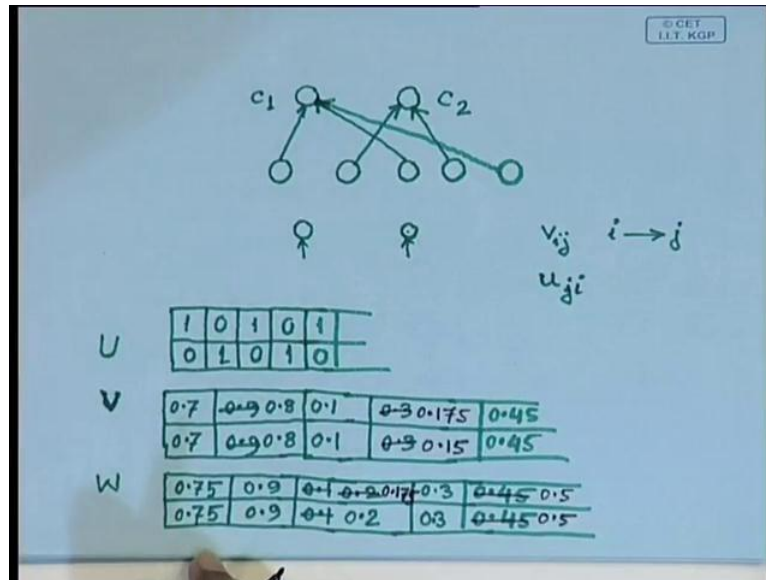 © CET
I.I.T. KGP
C1 C2
Vij i → j
Uji
U
1 0 1 0 1
0 1 0 1 0
V
0.7 0.9 0.8 0.1 0.3 0.175 0.45
0.7 0.9 0.8 0.1 0.3 0.15 0.45
W
0.75 0.9 0.1 0.2 0.175 0.3 0.45 0.5
0.75 0.9 0.1 0.2 0.3 0.45 0.5